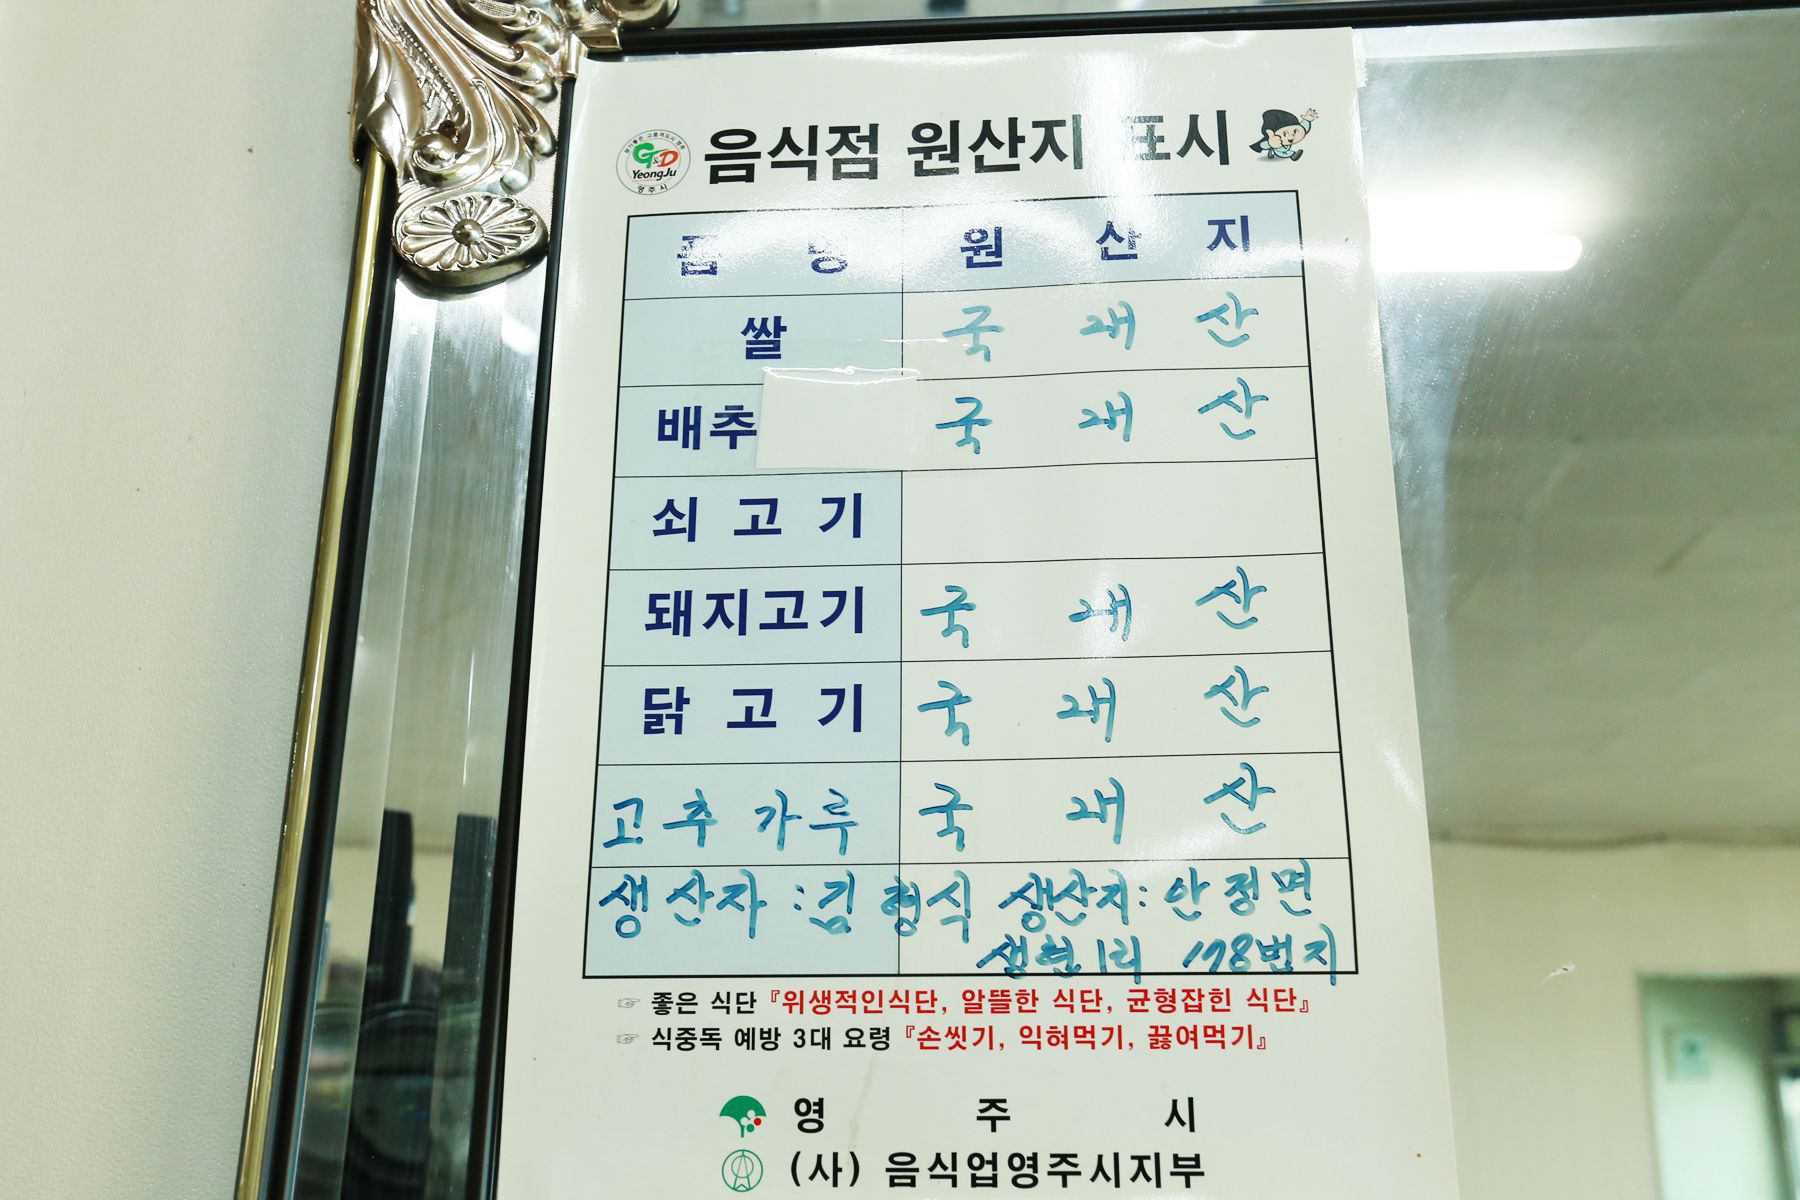 음식점 원산지 표시
G&D
YeongJu
영주시
품 명 원 산 지
쌀 국 내 산
배추 국 내 산
쇠 고 기
돼지고기 국 내 산
닭 고 기 국 내 산
고추 가루 국 내 산
생산자 : 김형식 생산지 : 안정면
생현1리 178번지
☞ 좋은 식단 『위생적인식단, 알뜰한 식단, 균형잡힌 식단』
☞ 식중독 예방 3대 요령 『손씻기, 익혀먹기, 끓여먹기』
영 주 시
(사) 음식업영주시지부